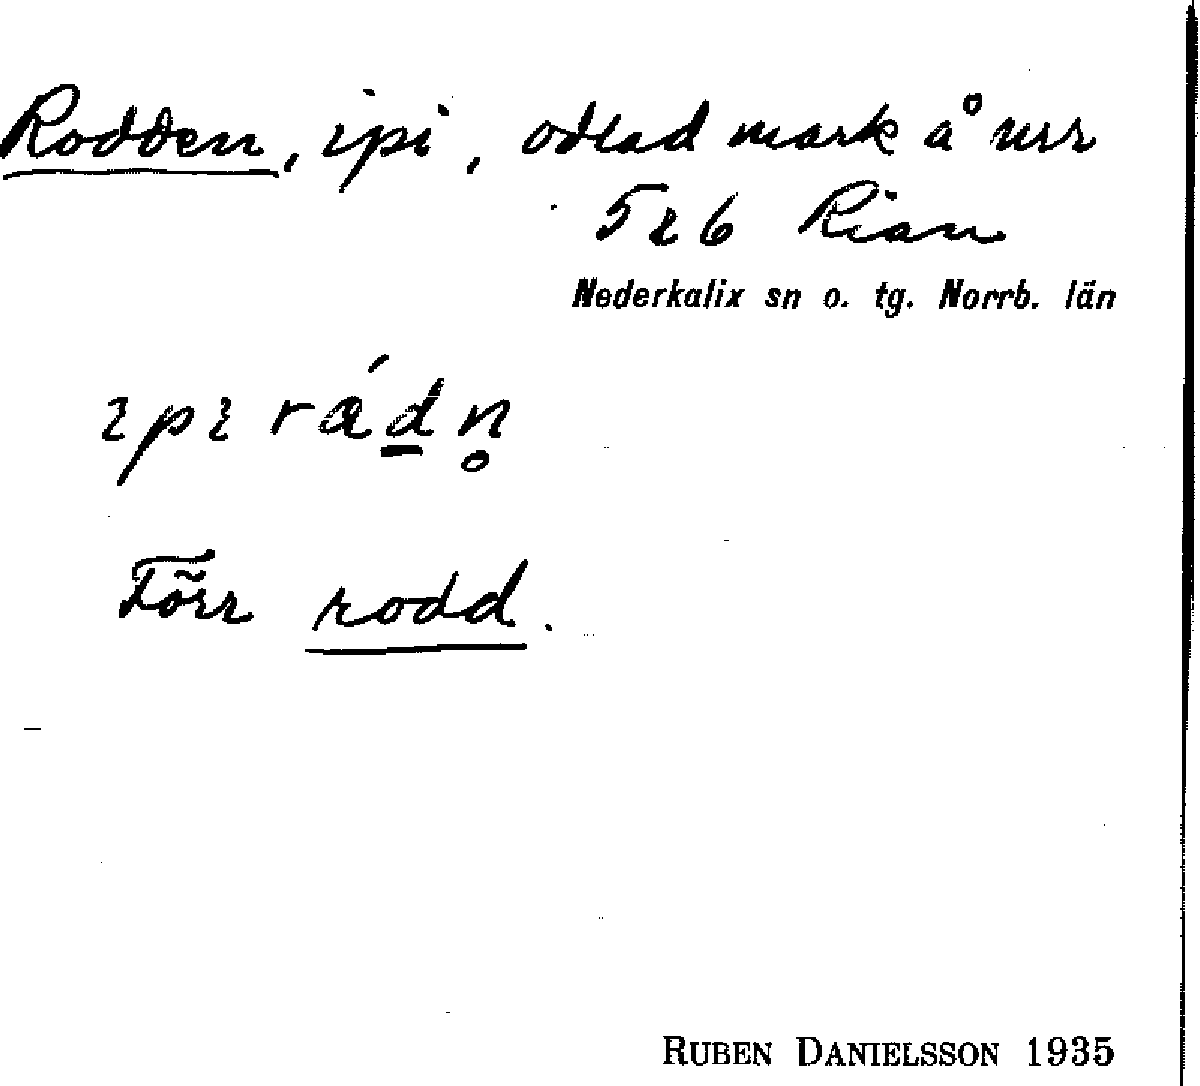 Rodden, ipi, odlad mark å nrr
5 o 6 Rian
Nederkalix sn o. tg. Norrb. län
ıpı rǽd̲n̥
Förr rodd.
RUBEN DANIELSSON 1935